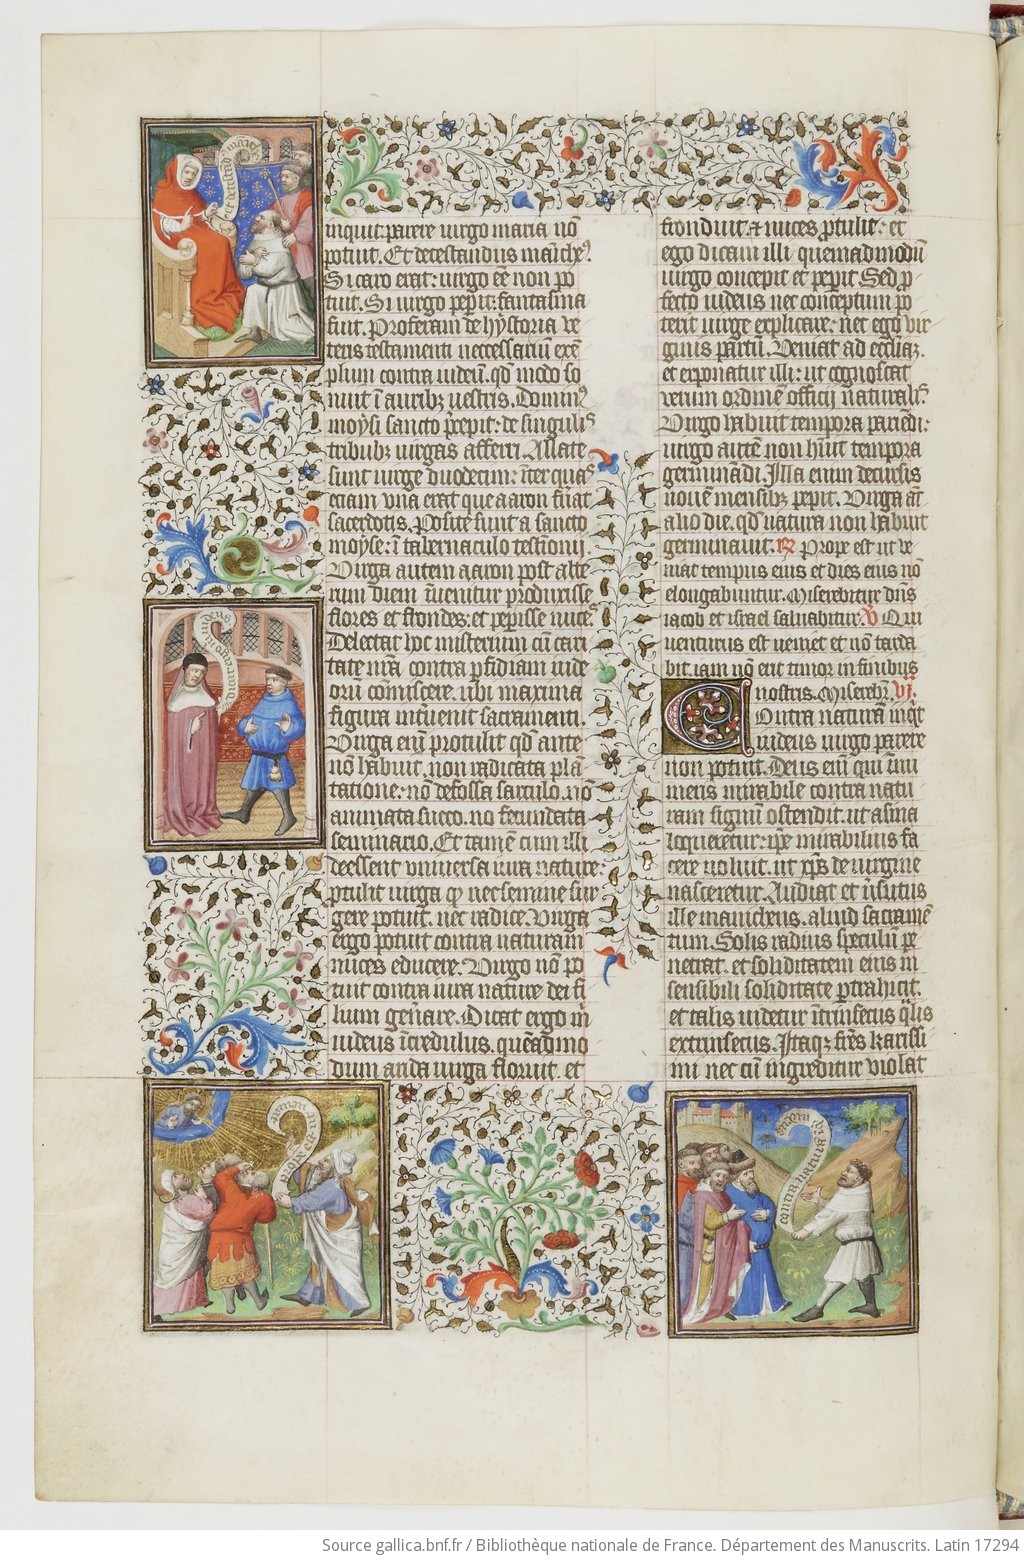 inquit: parere uirgo maria nō
potuit. Et detestandus manicheꝰ
Si caro erat: uirgo eē non po
tuit. Si uirgo peperit: fantasma
fuit. Proferam de hystoria ve
teris testamenti necessariū exē
plum contra iudeū. qd modo so
nuit ī auribꝫ uestris. Dominꝰ
moysi sancto precepit: de singulis
tribubꝫ uirgas afferri. Allate
sunt uirge duodecim: īter quas
etiam vna erat que aaron fuāt
sacerdotis. Posite sunt a sancto
moyse: ī tabernaculo testimonij
Virga autem aaron post alte
rum diem īuenitur produxisse
flores et frondes: et peperisse nuces
Delectat hoc misterium cū cari
tate nrā contra pfidiam iude
orū cōmiscere. ubi maxima
figura inuenit sacramenti.
Virga enī protulit qd ante
nō habuit. non radicata plā
tatione: nō defossa sarculo. nō
animata succo. nō fecundata
seminario. Et tamē cum illi
deessent vniuersa iura nature:
ptulit uirga qd nec semine sug
gere potuit. nec radice. Virga
ergo potuit contra naturam
nuces educere. Virgo nō po
tuit contra iura nature dei fi
lium genēare. Dicat ergo m̄
iudeus īcredulus. quēadmo
dum arida uirga floruit. et
fronduit. et nuces ptulit: et
ego dicam illi quemadmodū
uirgo concepit et pepit. Sed p
fecto iudeus nec conceptum po
terit uirge explicare: nec ego vir
ginis partū. Veniat ad eccliaz.
et exponatur illi: ut cognoscat
verum ordinē officij naturalis
Virgo habuit tempora pariēdi:
uirga autē non huit tempora
germinādi. Illa enim decursis
nouē mensibꝫ pepit. Virga aūt
alio die. qd natura non habuit
germinauit. R Prope est ut ve
niat tempus eius et dies eius nō
elongabuntur. Miserebitur dn̄s
iacob et israel saluabitur. V Qui
venturus est veniet et nō tarda
bit. iam nō erit timor in finibus
nostris. Misereb; vj.
Contra naturā inqt
iudeus uirgo parere
non potuit. Deus enī qui īmi
nens mirabile contra natu
ram signū ostendit. ut asina
loqueretur: ipē mirabilius fa
cere uoluit. ut xp̄s de uirgine
nasceretur. Audiat et īfistus
ille manicheus. aliud sacramē
tum. Solis radius speculū pe
netrat. et soliditatem eius in
sensibili soliditate ptrahicit.
et talis uidetur ītrinsecus qlis
extrinsecus. Itaqꝫ frēs karissi
mi nec cū ingreditur violat
contra naturā